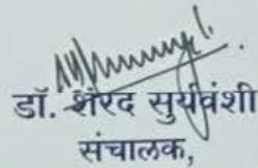 डॉ. शरद सुर्यवंशी
संचालक,